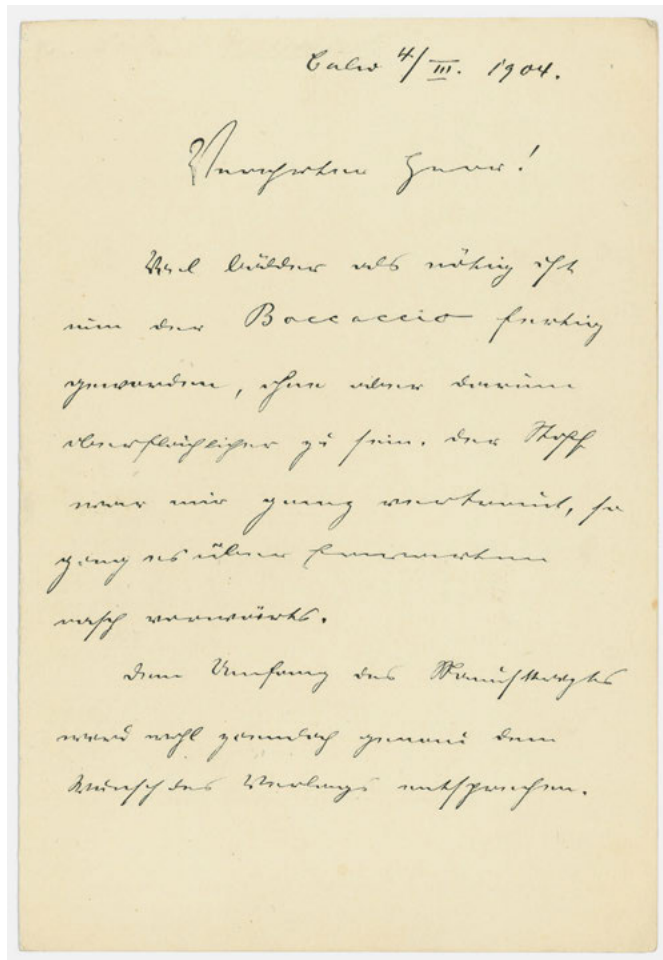 Calw 4/III. 1904.
Verehrter Herr!
Viel bälder als nötig ist
nun der Boccaccio fertig
geworden, ohne aber darum
oberflächlicher zu sein. Der Stoff
war mir ganz vertraut, so
ging es über Erwarten
rasch vorwärts.
Umfang des Manuskriptes
wird wohl ziemlich genau dem
Wunsch des Verlags entsprechen.